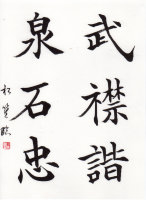 武襟諧
泉石忠
臨